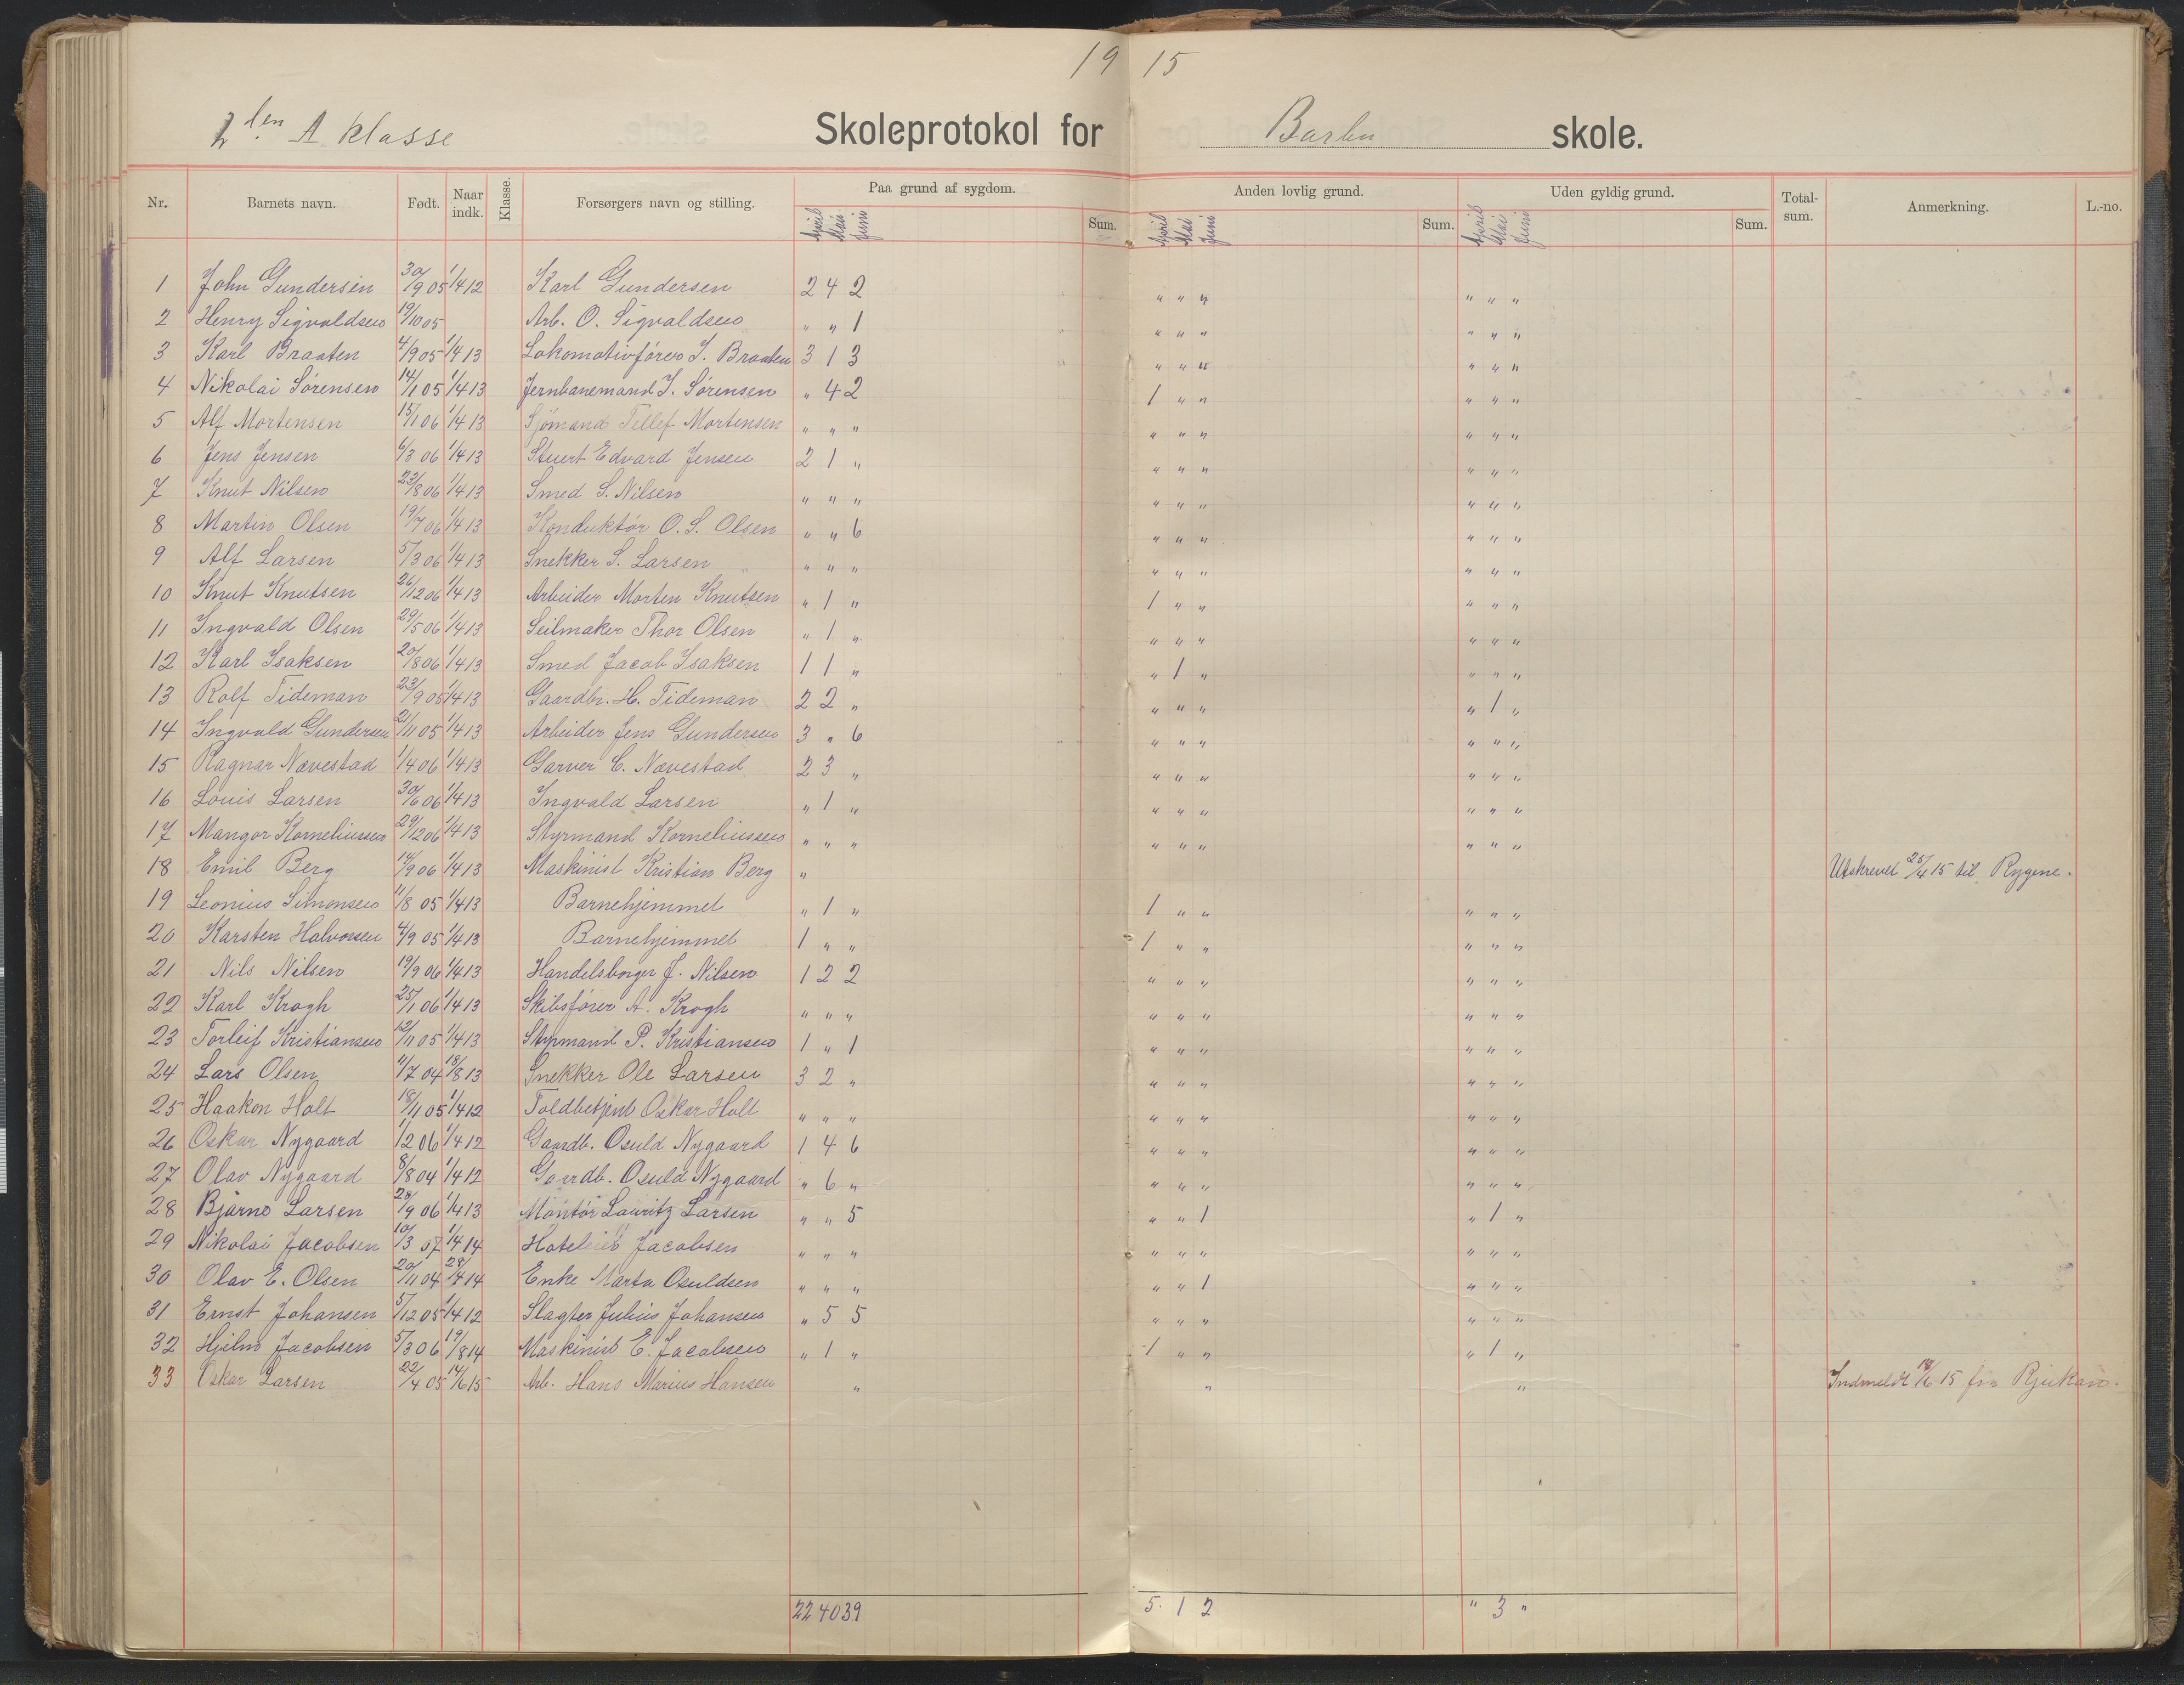 19 15
2den A klasse Skoleprotokol for Barbu skole.
Nr. Barnets navn. Født. Naar indk. Klasse. Forsørgers navn og stilling. Paa grund af sygdom. Sum. Anden lovlig grund. Sum. Uden gyldig grund. Sum. Total-sum. Anmerkning. L.-no.
April Mai Juni April Mai Juni April Mai Juni
1 John Gundersen 30/9 05 1/4 12 Karl Gundersen 2 4 2 " " " " " "
2 Henry Sigvaldsen 19/10 05 Arb. O. Sigvaldsen " " 1 " " " " " "
3 Karl Braaten 4/9 05 1/4 13 Lokomotivfører J. Braaten 3 1 3 " " " " " "
4 Nikolai Sørensen 14/1 05 1/4 13 Jernbanemand J. Sørensen " 4 2 1 " " " " "
5 Alf Mortensen 15/1 06 1/4 13 Sjømand Tellef Mortensen " " " " " " " " "
6 Jens Jensen 6/3 06 1/4 13 Stuert Edvard Jensen 2 1 " " " " " " "
7 Knut Nilsen 23/8 06 1/4 13 Smed S. Nilsen " " " " " " " " "
8 Martin Olsen 19/7 06 1/4 13 Konduktør O. S. Olsen " " 6 " " " " " "
9 Alf Larsen 5/3 06 1/4 13 Snekker S. Larsen " " " " " " " " "
10 Knut Knutsen 26/12 06 1/4 13 Arbeider Morten Knutsen " 1 " 1 " " " " "
11 Ingvald Olsen 29/5 06 1/4 13 Seilmaker Thor Olsen " 1 " " " " " " "
12 Karl Isaksen 20/8 06 1/4 13 Smed Jacob Isaksen 1 1 " " 1 " " " "
13 Rolf Tideman 23/9 05 1/4 13 Gaardbr. H. Tideman 2 2 " " " " " 1 "
14 Ingvald Gundersen 21/11 05 1/4 13 Arbeider Jens Gundersen 3 " 6 " " " " " "
15 Ragnar Nævestad 1/4 06 1/4 13 Garver C. Nævestad 2 3 " " " " " " "
16 Louis Larsen 30/6 06 1/4 13 Ingvald Larsen " 1 " " " " " " "
17 Mangor Korneliussen 29/12 06 1/4 13 Styrmand Korneliussen " " " " " " " " "
18 Emil Berg 14/9 06 1/4 13 Maskinist Kristian Berg " Utskrevet 25/4 15 til Rygene.
19 Leonius Simonsen 11/8 05 1/4 13 Barnehjemmet " 1 " 1 " " " " "
20 Karsten Halvorsen 4/9 05 1/4 13 Barnehjemmet 1 " " 1 " " " " "
21 Nils Nilsen 19/9 06 1/4 13 Handelsborger J. Nilsen 1 2 2 " " " " " "
22 Karl Krogh 25/1 06 1/4 13 Skibsfører A. Krogh " " " " " " " " "
23 Torleif Kristiansen 12/11 05 1/4 13 Styrmand P. Kristiansen 1 " 1 " " " " " "
24 Lars Olsen 11/7 04 18/8 13 Snekker Ole Larsen 3 2 " " " " " " "
25 Haakon Holt 18/11 05 1/4 12 Toldbetjent Oskar Holt " " " " " " " " "
26 Oskar Nygaard 1/2 06 1/4 12 Gaardb. Osuld Nygaard 1 4 6 " " " " " "
27 Olav Nygaard 8/8 04 1/4 12 Gaardb. Osuld Nygaard " 6 " " " " " " "
28 Bjarne Larsen 28/9 06 1/4 13 Montør Lauritz Larsen " " 5 " " 1 " 1 "
29 Nikolai Jacobsen 10/3 07 1/4 14 Hoteleier Jacobsen " " " " " " " " "
30 Olav E. Olsen 20/11 04 28/4 14 Enke Marta Osuldsen " " " " " 1 " " "
31 Ernst Johansen 5/12 05 1/4 12 Slagter Julius Johansen " 5 5 " " " " " "
32 Hjelm Jacobsen 5/3 06 19/8 14 Maskinist E. Jacobsen " 1 " 1 " " " 1 "
33 Oskar Larsen 22/4 05 14/6 15 Arb. Hans Marius Hansen " " " Indmeldt 14/6 15 fra Rjukan.
22 40 39 5. 1 2 " 3 "